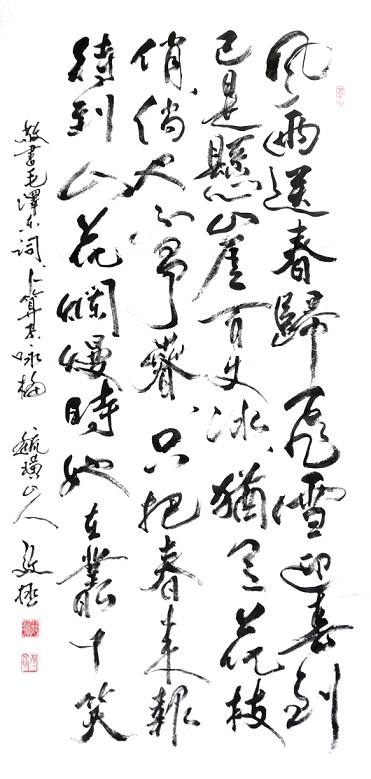 風雨送春歸飛雪迎春到
已是懸崖百丈冰猶有花枝
俏俏也不爭春只把春来報
待到山花爛熳時她在叢中笑
敬書毛澤东詞卜算子咏梅 毓璜山人